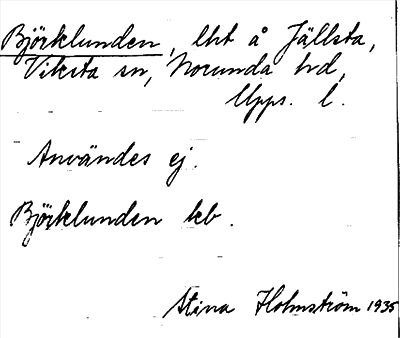 Björklunden, lht å Jällsta,
Viksta sn, Norunda hd,
Upps. l.
Användes ej.
Björklunden kb.
Stina Holmström 1935